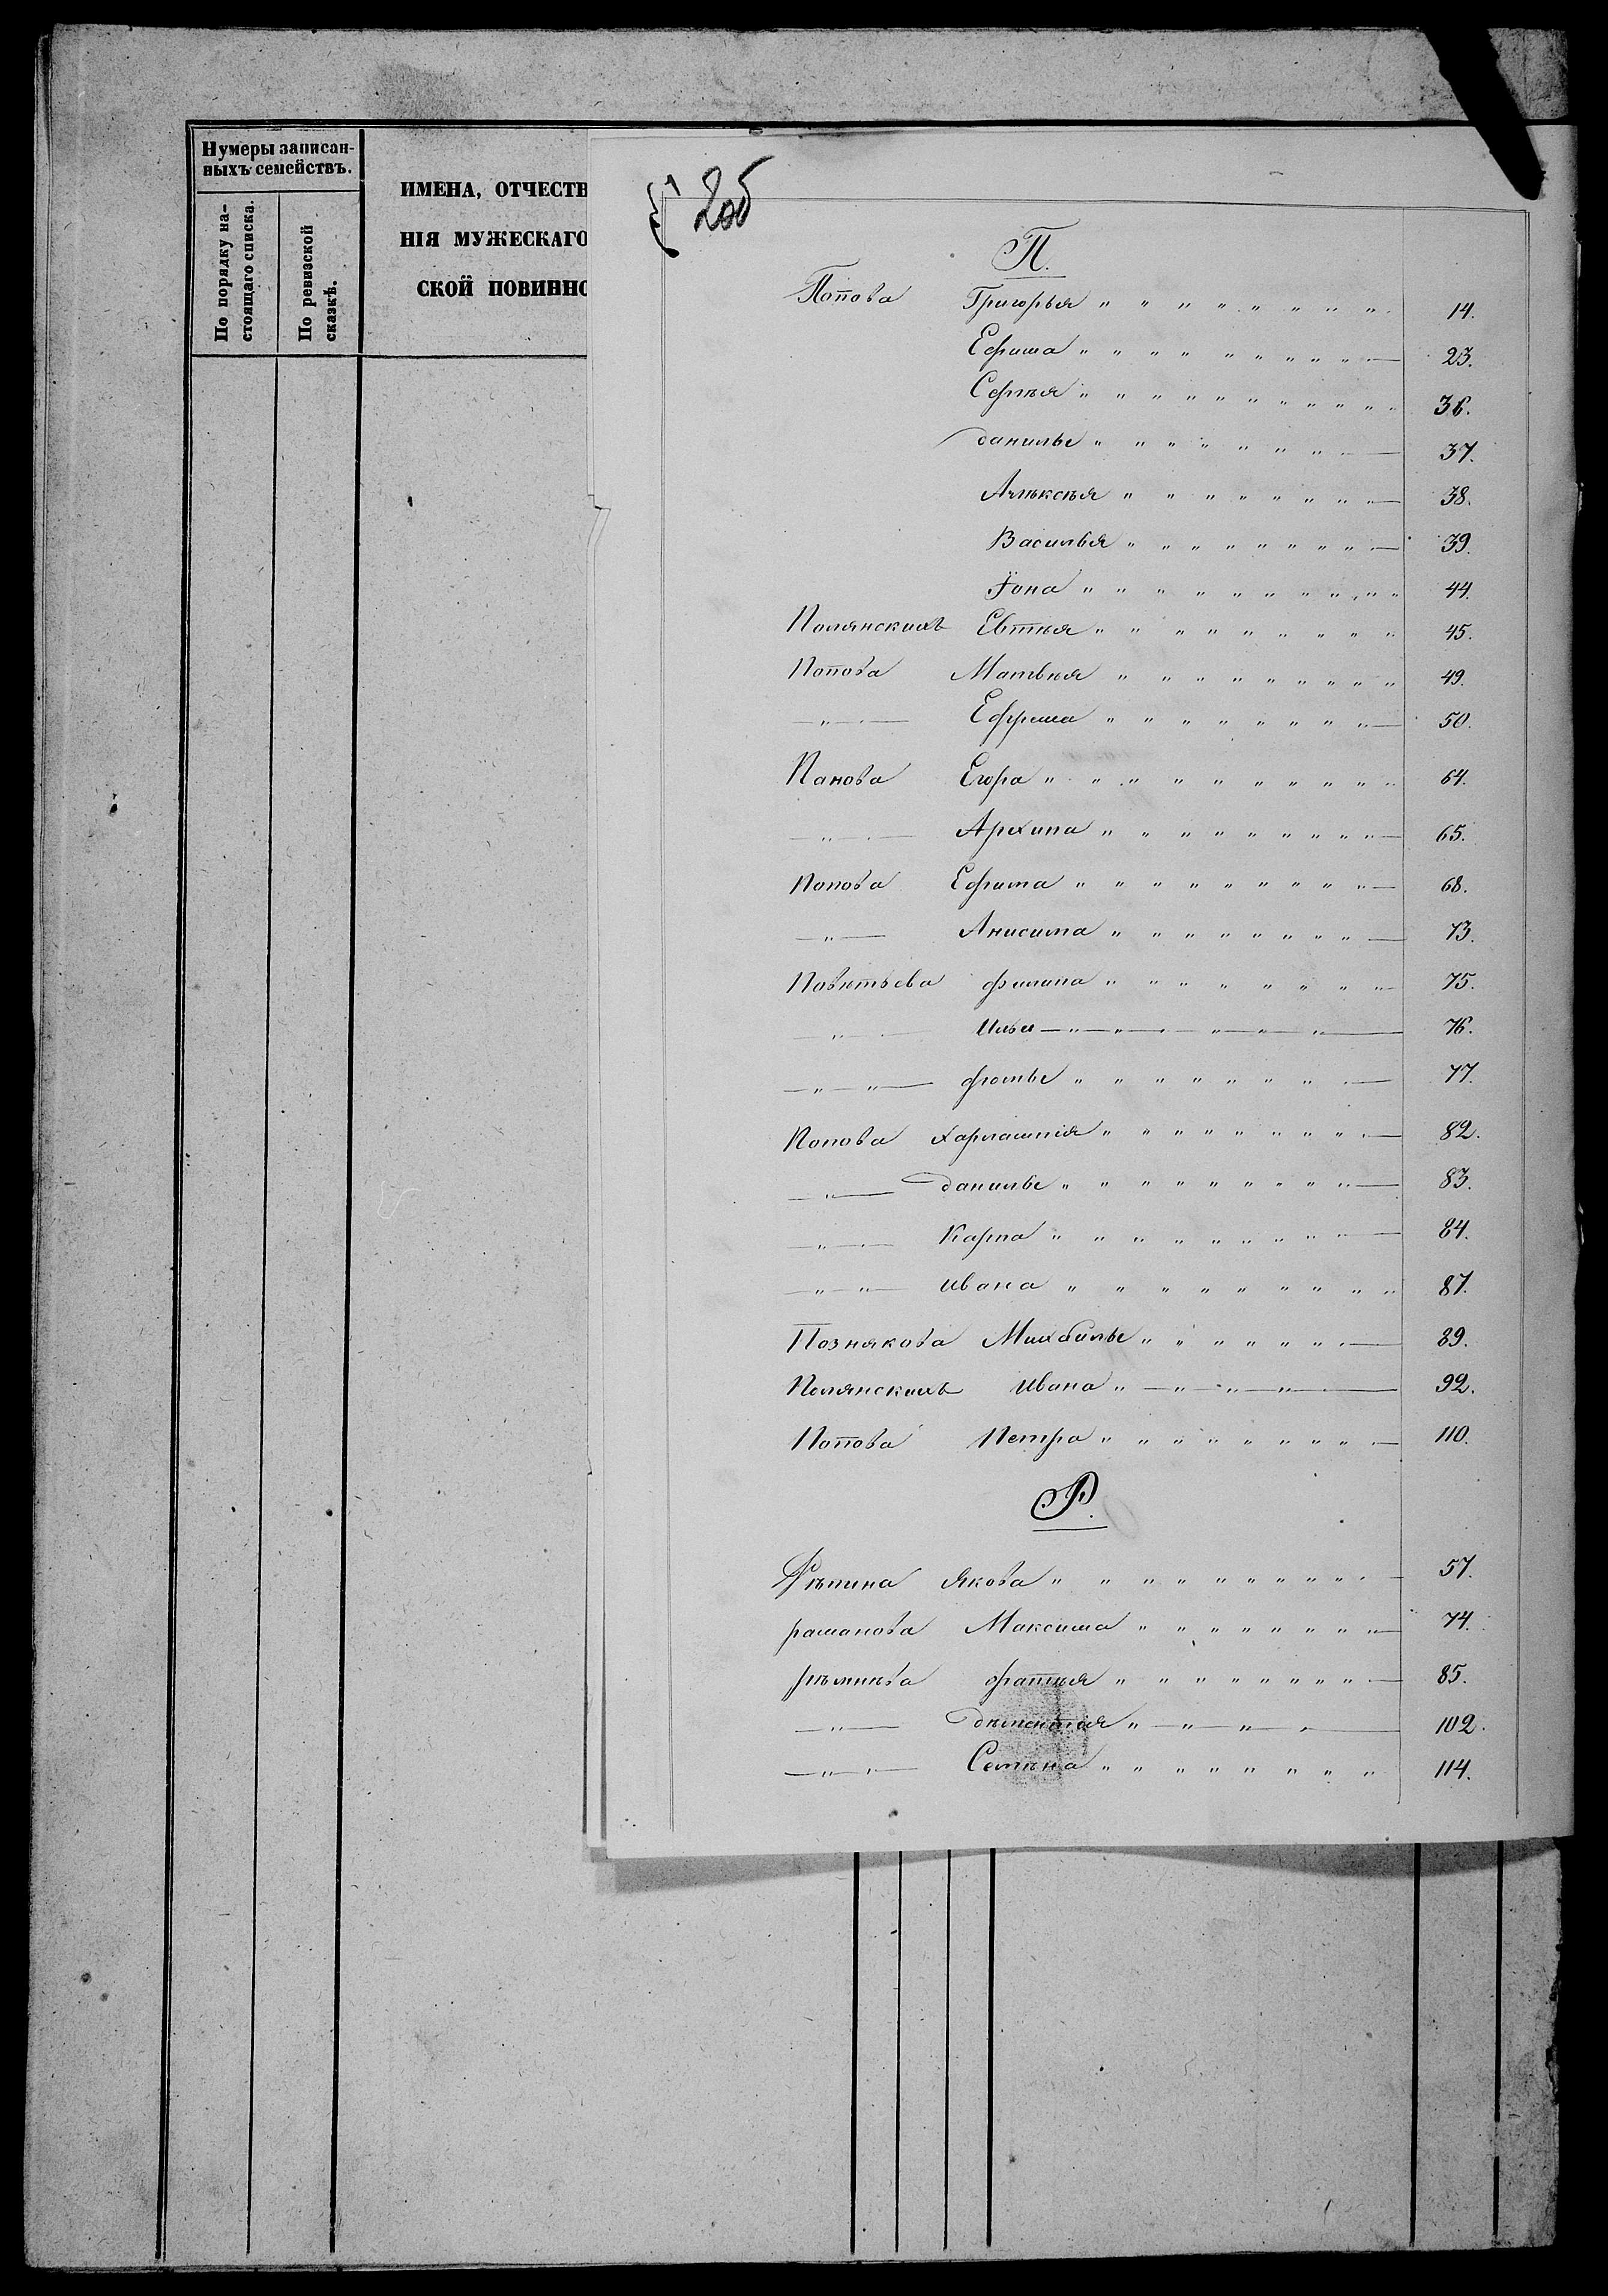 Нумеры записан-
ныхъ семействъ.
По порядку на-
стоящаго списка.
По ревизской
сказкѣ.
ИМЕНА, ОТЧЕСТВ
НІЯ МУЖЕСКАГО
СКОЙ ПОВИННО
2об
П.
Попова Григорья 14.
Ефима 23.
Сергѣя 36.
данилы 37.
Алѣксѣя 38.
Василья 39.
Іона 44.
Полянскихъ Евтѣя 45.
Попова Матвѣя 49.
—„— Ефрема 50.
Панова Егора 64.
—„— Архипа 65.
Попова Ефима 68.
—„— Анисима 73.
Повѣтьева филипа 75.
—„— Ильи 76.
—„—„— фомы 77.
Попова Харлампія 82.
—„— данилы 83.
—„— Карпа 84.
—„—„— ивана 87.
Познякова Михаилы 89.
Полянскихъ Ивана 92.
Попова Петра 110.
Р.
Рѣпина Якова 57.
раманова Максима 74.
85.
—„— дѣмѣнтія 102.
—„—„— Семѣна 114.